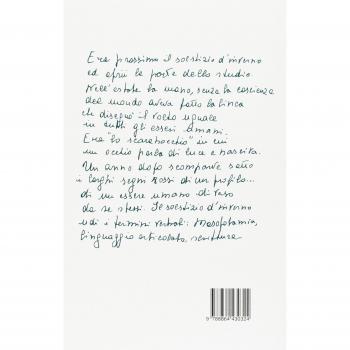 Era prossimo il solstizio d'inverno
ed aprii le porte dello studio
Nell'estate la mano, senza la coscienza
del mondo aveva fatto la linea
che disegnò il volto uguale
in tutti gli esseri umani.
Era "lo scarabocchio" in cui
un occhio parla di luce e nascita.
Un anno dopo scomparve sotto
i larghi segni rossi di un profilo...
di un essere umano diverso
da se stessi. Il solstizio d'inverno
udì i termini verbali: Mesopotamia,
linguaggio articolato, scrittura
9 788864 430324